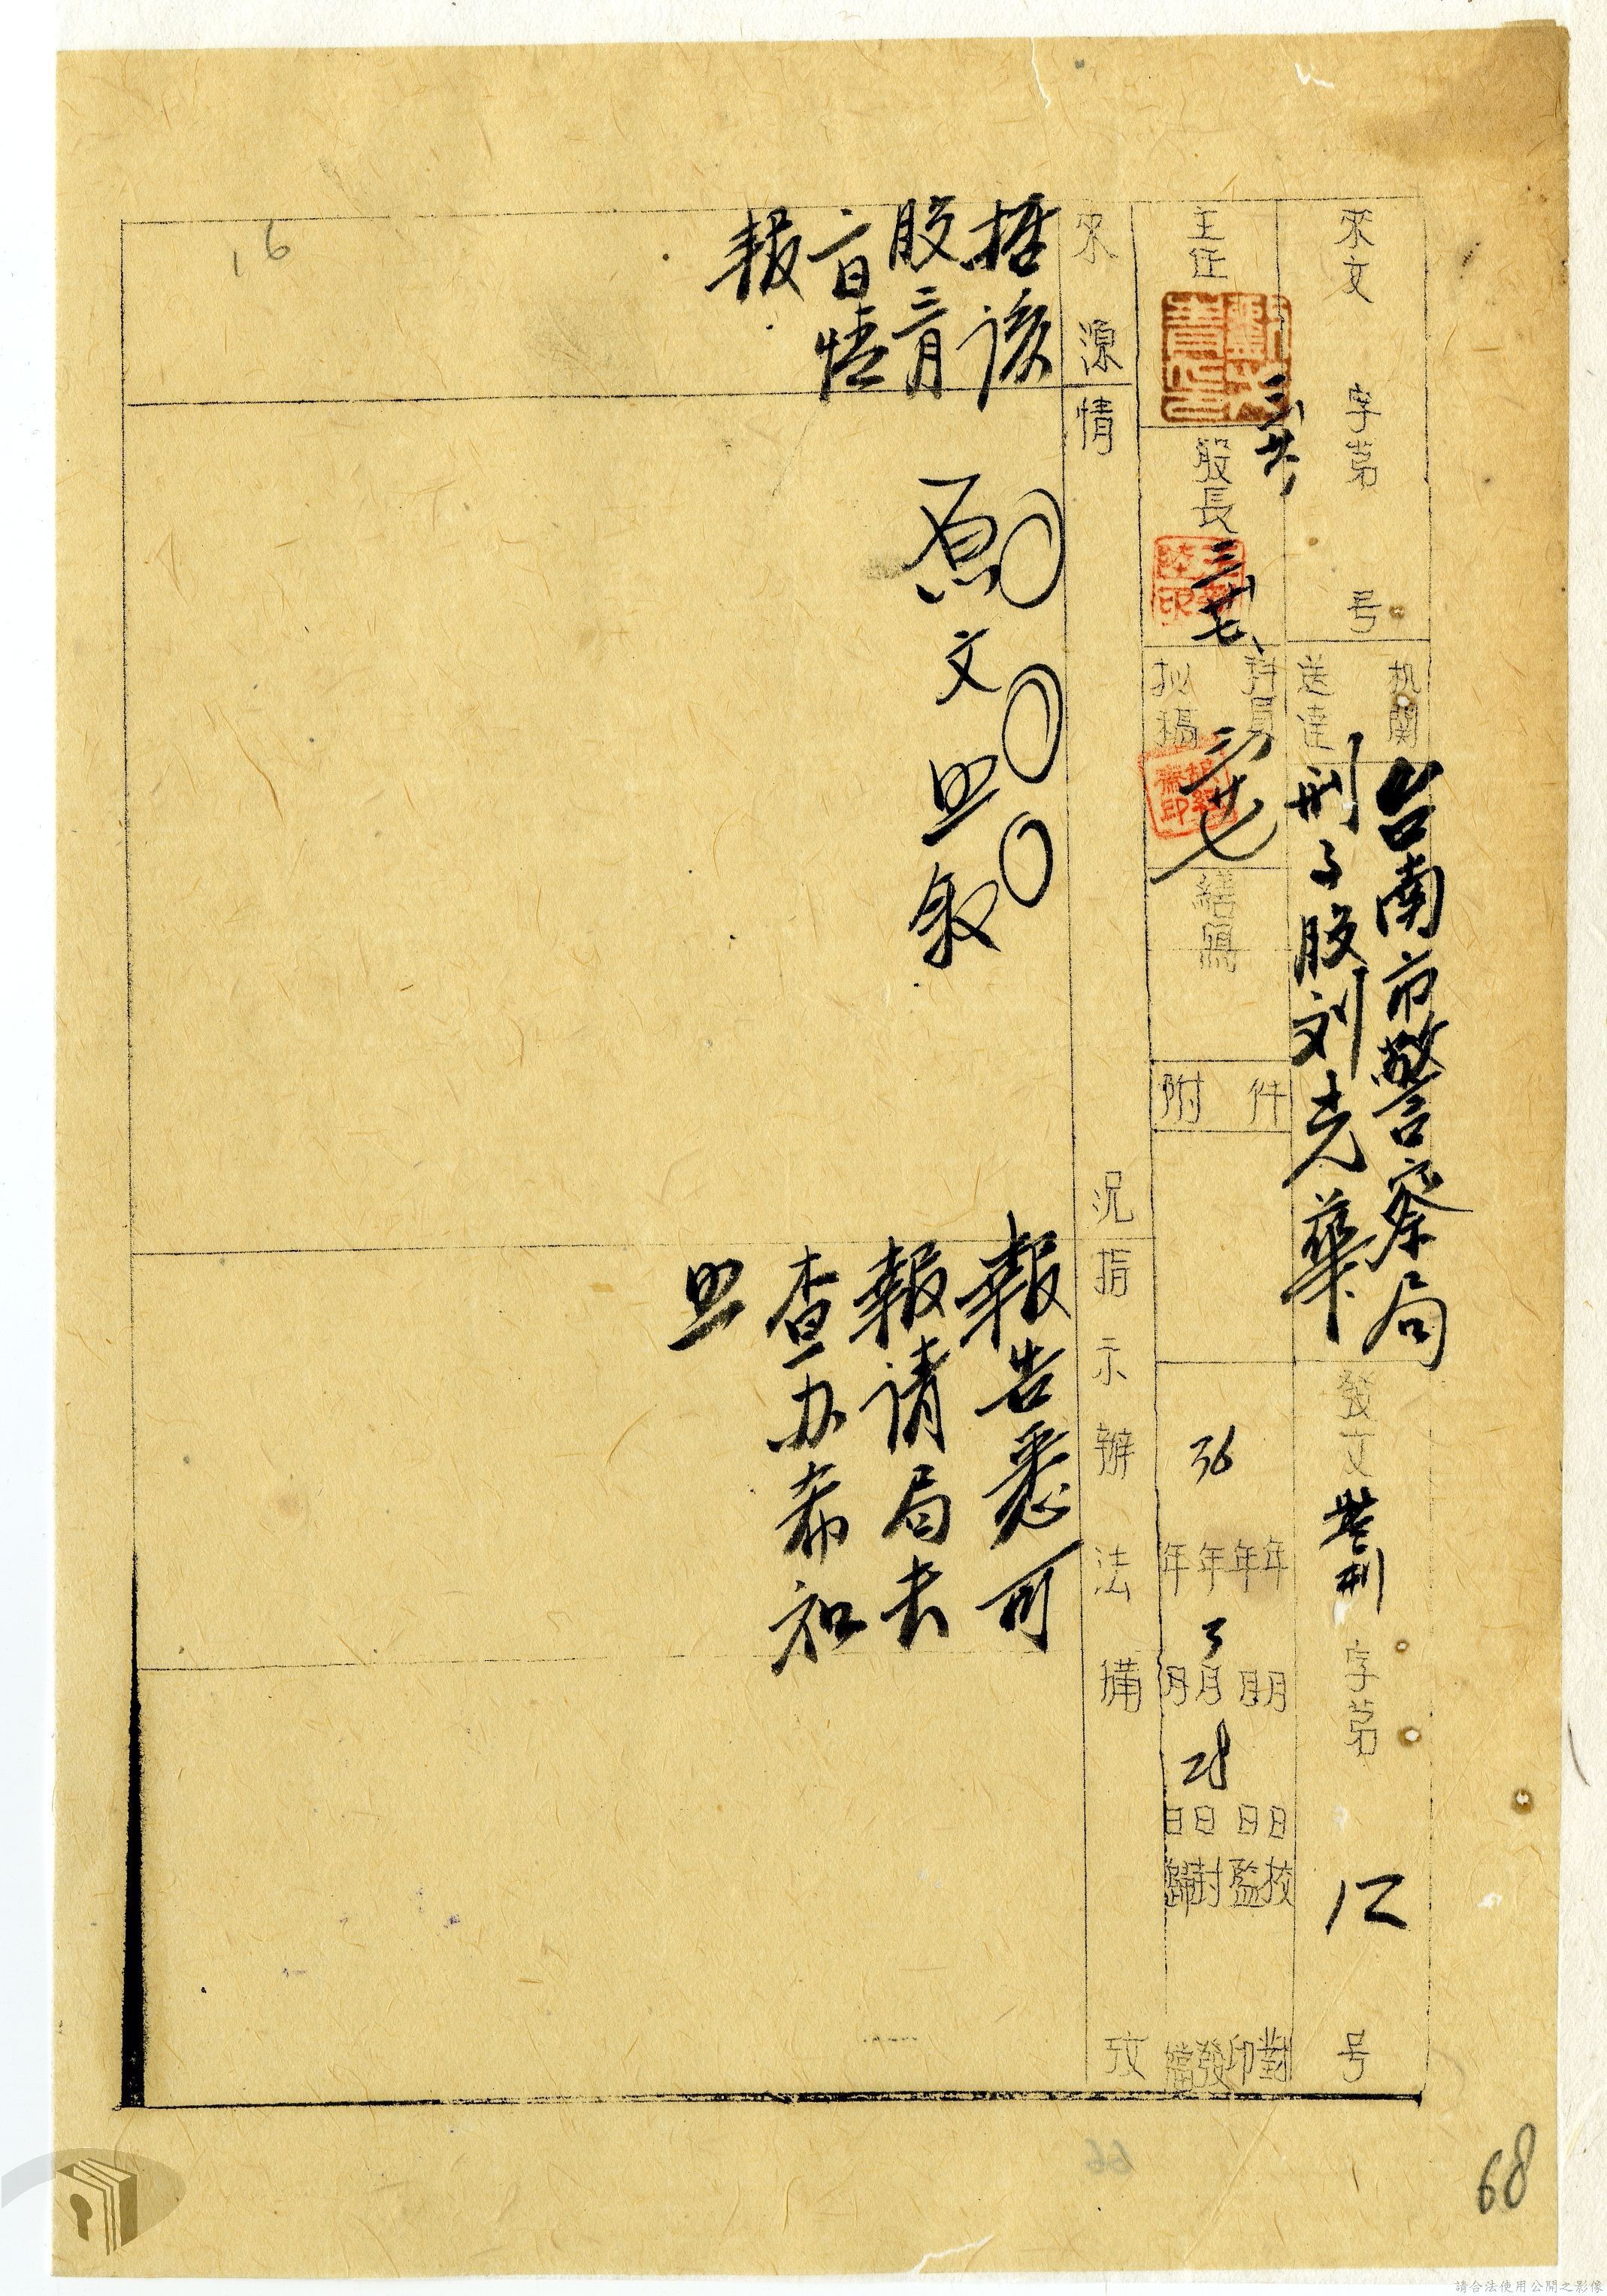 來文 字第 号
机關
送達
台南市警察局
刑事股刘克華
發文 營刑 字第 12 号
主任
股長 三 廿七
科員
拟稿
三 廿七
繕寫
附件
36年3月28日
年 月 日 校對
年 月 日 監印
年 月 日 封發
年 月 日 歸檔
來源
情況
指示辦法
備攷
据該
股三月
六日情
報
原文照叙
報告悉可
報請局長
查办希知
照
16
66
68
請合法使用公開之影像